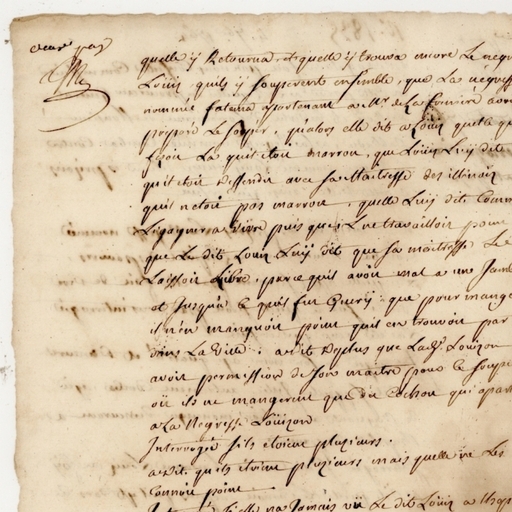 quelle y Retourna et quelle y trouva encore Le negr
Louis quils y souperent ensemble, que La negresse
nommée fatima apartenant a Mr. de La
preparé Le souper, qualors elle dit a Louis quest ce qu
faisoit La quil etoit marron, que Louis Luy dit
quil etoit dessendu avec sa Maitresse des illinois
quil netoit pas marron, quelle Luy dit Comm
vivre puis que Lne travailloit point
que Le dit Louis Luy dit que sa maitresse Le
Laissoit Libre, parce quil avoit mal a une Jamb
et Jusqua ce quil fut Guery, que pour mange
il n'en manquoit point quil en trouvoit par
dans La Ville; a dit deplus que Lad. Louison
avoit permission de son maitre pour Le soupe
où ils ne mangerent que du Cochon qui apart
a La Negresse Louison
Interrogée s'ils etoient plusieurs.
a dit quils etoient plusieurs mais quelle ne Les
Connoit point
sielle na Jamais vü Le dit Louis a